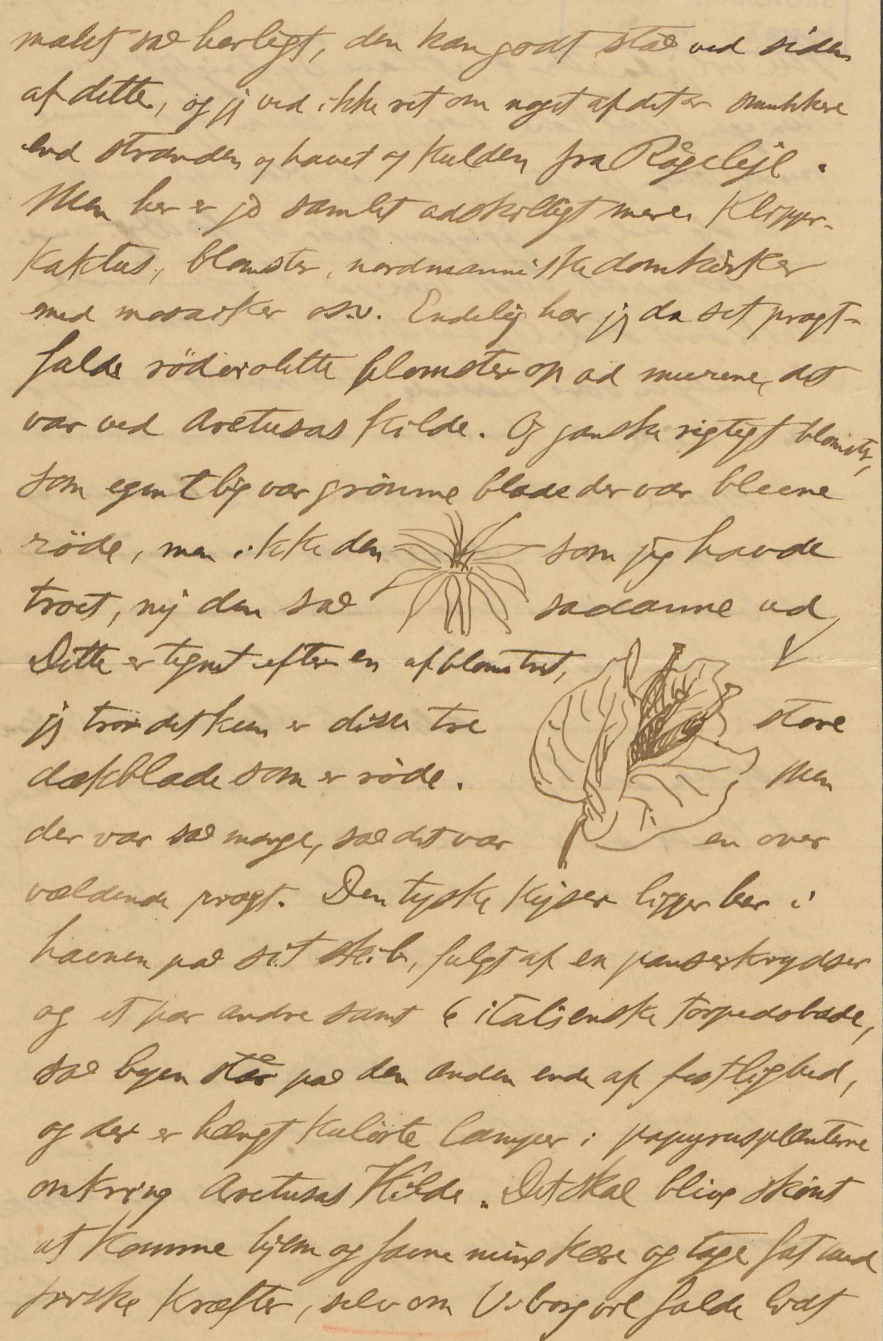 malet saa herligt, den kan godt staa ved siden
af dette, og jeg ved ikke ret om noget af det er smukkere
end stranden og havet og kulden fra Rågeleje.
Men her er jo samlet adskilligt mere. Klipper,
Kaktus, blomster, nordmanniske domkirker
med mosaiker osv. Endelig har jeg da set pragt-
fulde rödviolette blomster op ad murene, det
var ved Aretusas Kilde. Og ganske rigtigt blomster,
som egentlig var grönne blade der var blevne
röde, men ikke den som jeg havde
troet, nej den saa saadanne ud,
Dette er tegnet efter en afblomstret,
jeg tror det kun er disse tre store
dækblade som er röde. Men
der var saa mange, saa det var en over
vældende pragt. Den tyske Kejser ligger her i
havnen paa sit skib, fulgt af en panserkrydser
og et par andre samt 6 italienske torpedobaade,
saa byen står paa den anden ende af festlighed,
og der er hængt kulörte lamper i papyrusplanterne
omkring Aretusas Kilde. Det skal blive skönt
at komme hjem og favne mine kære og tage fat med
friske kræfter, selv om Viborg vil falde lidt